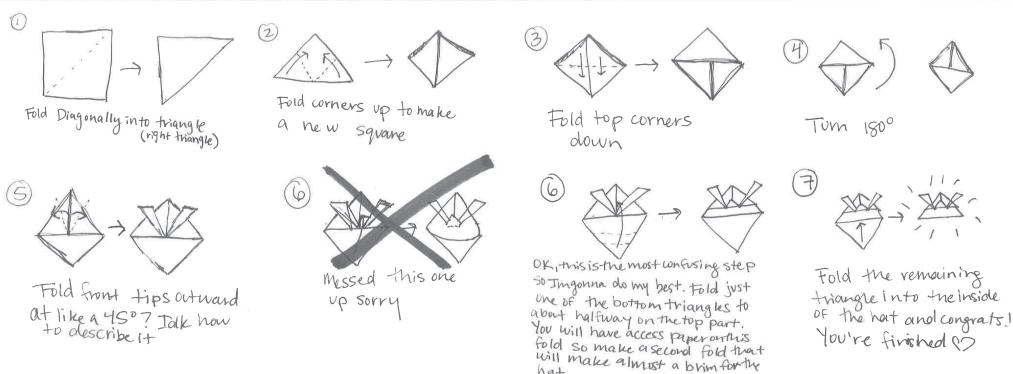 1
Fold Diagonally into triangle
(right triangle)
2
Fold corners up to make
a new square
3
Fold top corners
down
4
Turn 180°
5
Fold front tips outward
at like a 45°? Idk how
to describe it
6
Messed this one
up sorry
6
OK, this is the most confusing step
so Im gonna do my best. Fold just
one of the bottom triangles to
about halfway on the top part.
You will have access paper on this
fold so make a second fold that
will make almost a brim for the
hat
7
Fold the remaining
triangle into the inside
of the hat and congrats!
You're finished ♡